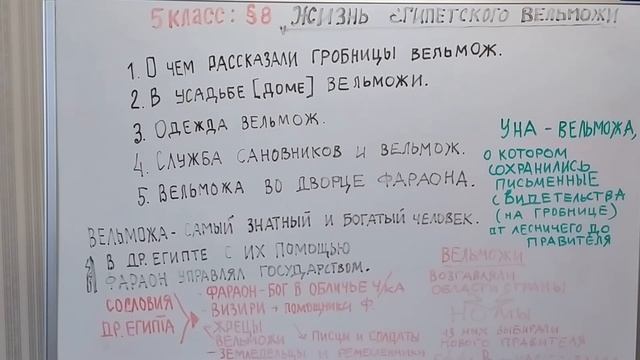 5 КЛАСС: §8 „ЖИЗНЬ ЕГИПЕТСКОГО ВЕЛЬМОЖИ
1. О ЧЕМ РАССКАЗАЛИ ГРОБНИЦЫ ВЕЛЬМОЖ.
2. В УСАДЬБЕ [ДОМЕ] ВЕЛЬМОЖИ.
3. ОДЕЖДА ВЕЛЬМОЖ.
4. СЛУЖБА САНОВНИКОВ И ВЕЛЬМОЖ.
5. ВЕЛЬМОЖА ВО ДВОРЦЕ ФАРАОНА.
УНА - ВЕЛЬМОЖА,
О КОТОРОМ
СОХРАНИЛИСЬ
ПИСЬМЕННЫЕ
СВИДЕТЕЛЬСТВА
(НА ГРОБНИЦЕ)
ОТ ЛЕСНИЧЕГО ДО
ПРАВИТЕЛЯ
ВЕЛЬМОЖА - САМЫЙ ЗНАТНЫЙ И БОГАТЫЙ ЧЕЛОВЕК.
В ДР. ЕГИПТЕ С ИХ ПОМОЩЬЮ
ФАРАОН УПРАВЛЯЛ ГОСУДАРСТВОМ.
СОСЛОВИЯ
ДР. ЕГИПТА
- ФАРАОН - БОГ В ОБЛИЧЬЕ Ч/КА
- ВИЗИРИ - ПОМОЩНИКИ Ф.
- ЖРЕЦЫ
ВЕЛЬМОЖИ - ПИСЦЫ И СОЛДАТЫ
- ЗЕМЛЕДЕЛЬЦЫ И РЕМЕСЛЕННИКИ
ВЕЛЬМОЖИ
ВОЗГЛАВЛЯЛИ
ОБЛАСТИ СТРАНЫ
НОМЫ
ИЗ НИХ ВЫБИРАЛИ
НОВОГО ПРАВИТЕЛЯ